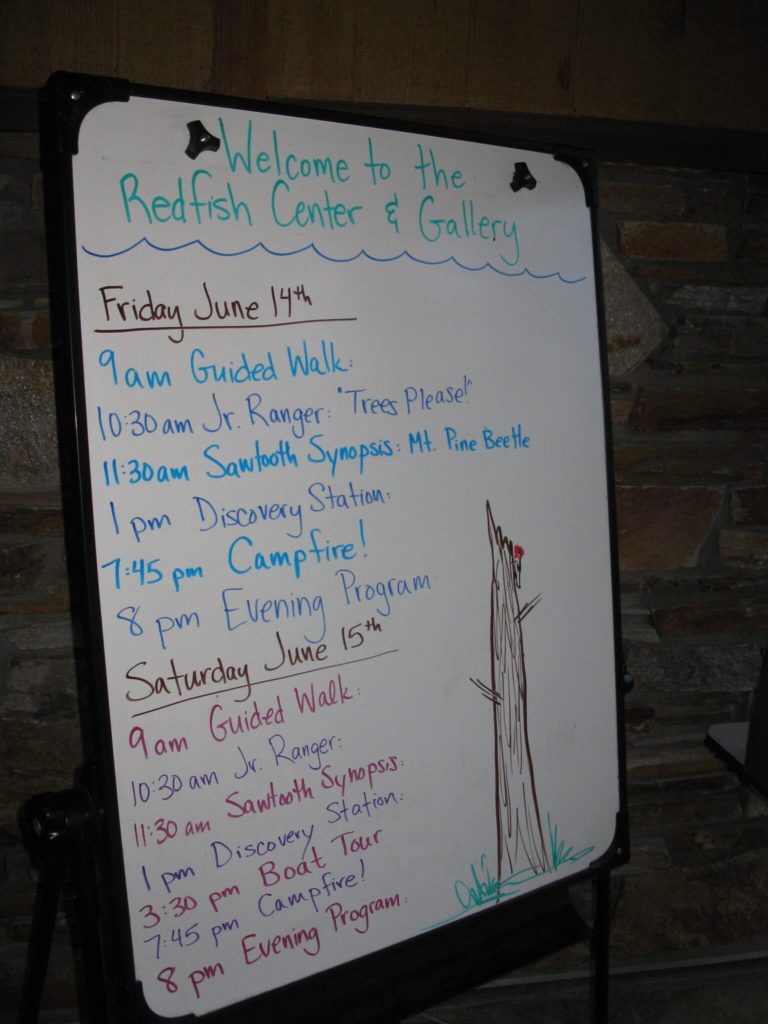 Welcome to the
Redfish Center & Gallery
Friday June 14th
9am Guided Walk:
10:30am Jr. Ranger: "Trees Please!"
11:30am Sawtooth Synopsis: Mt. Pine Beetle
1pm Discovery Station:
7:45 pm Campfire!
8 pm Evening Program
Saturday June 15th
9am Guided Walk:
10:30am Jr. Ranger:
11:30 am Sawtooth Synopsis:
1 pm Discovery Station:
3:30 pm Boat Tour
7:45 pm Campfire!
8 pm Evening Program: